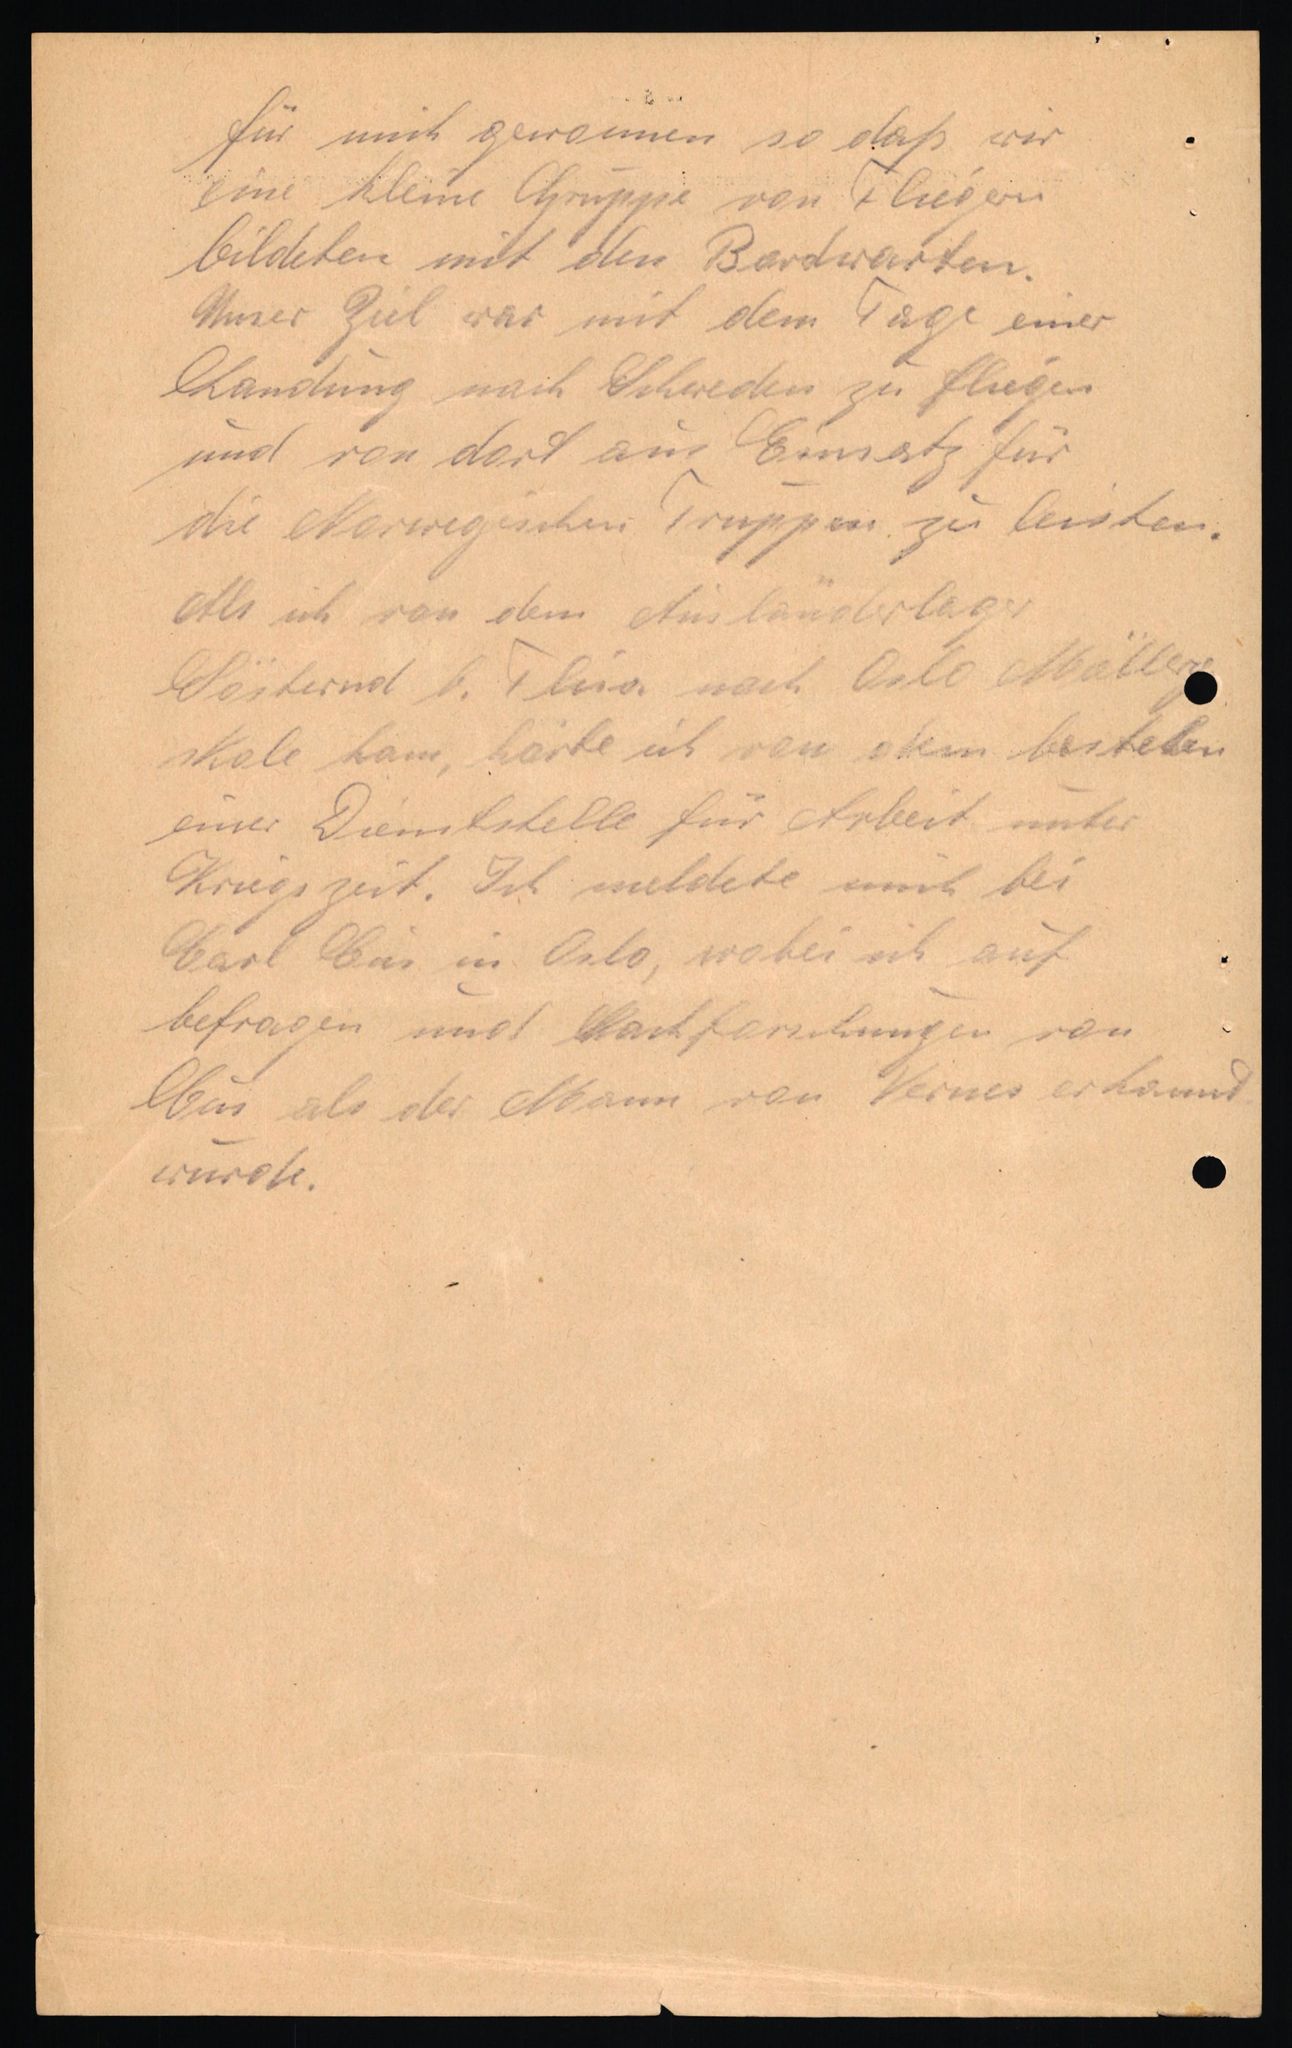 für mich gewonnen so daß wir
eine kleine Gruppe von Fliegern
bildeten mit den Bordwarten.
Unser Ziel war mit dem Tage einer
Landung nach Schweden zu fliegen
und von dort aus Einsatz für
die Norwegischen Truppen zu leisten.
Als ich von dem Ausländerlager
b. Flisa nach Oslo
skole kam, hörte ich von dem bestehen
einer Dienststelle für Arbeit unter
Kriegszeit. Ich meldete mich bei
Carl in Oslo, wobei ich auf
befragen und Nachforschungen von
als der Mann von Vernes erkannt
wurde.